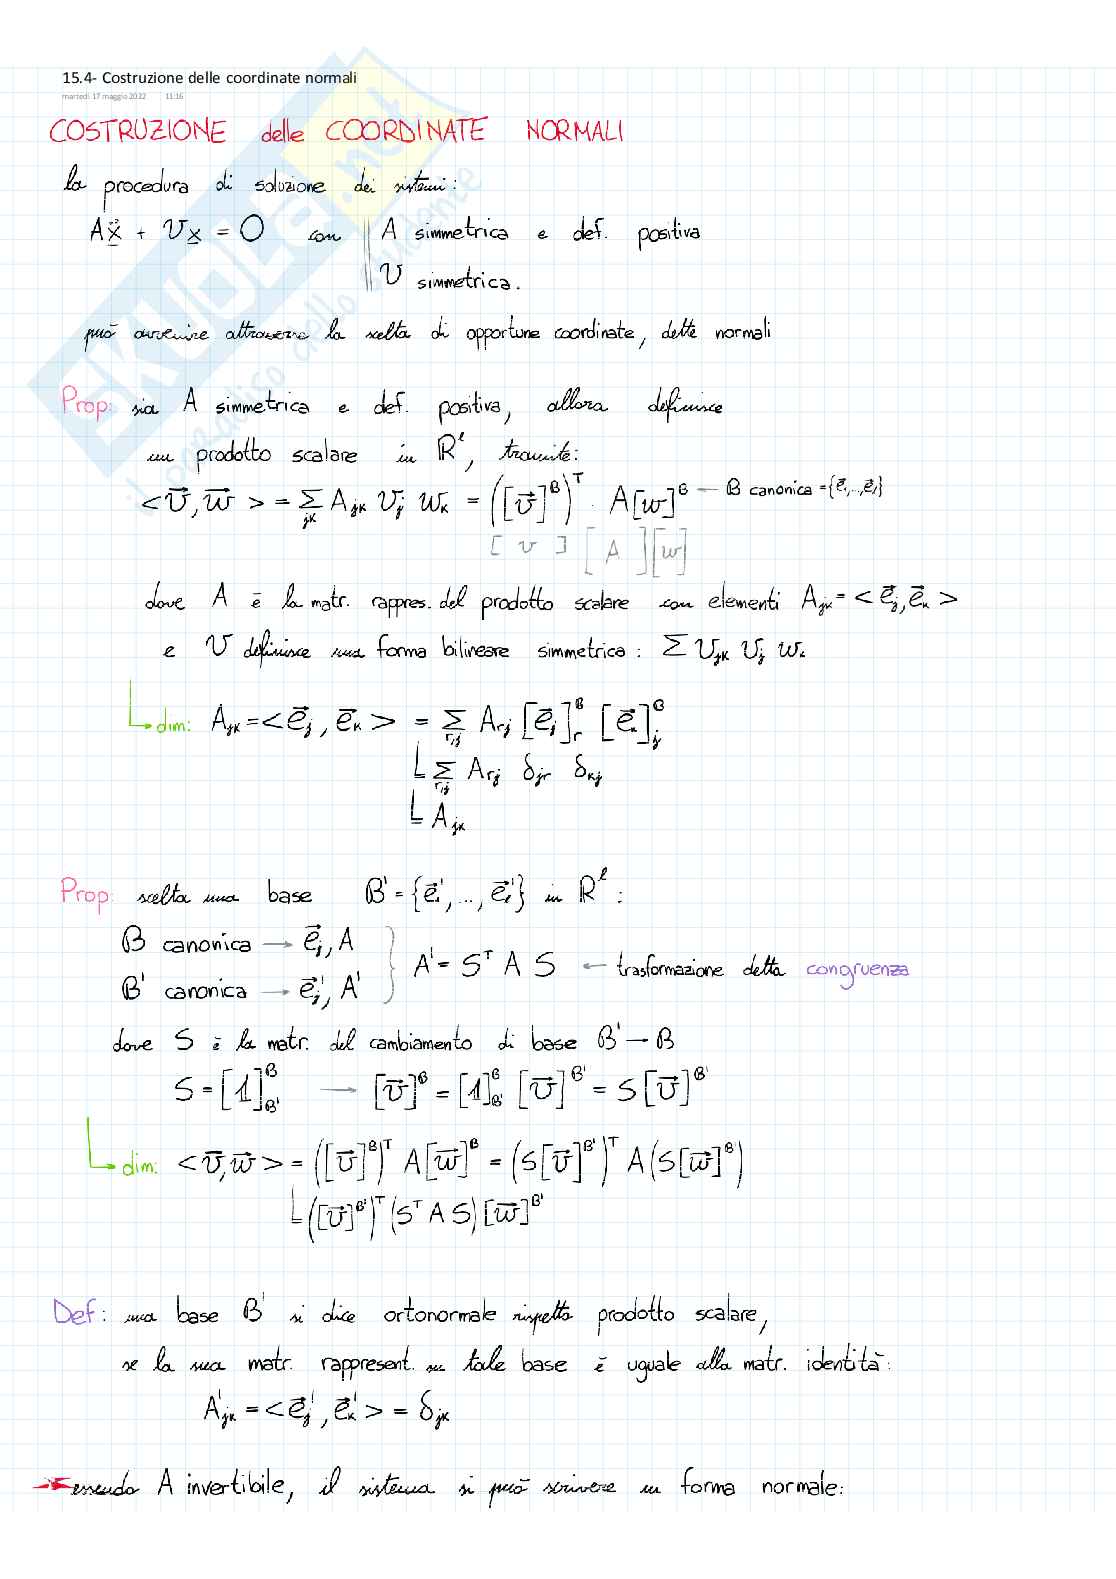 15.4- Costruzione delle coordinate normali
martedì 17 maggio 2022 11:16
COSTRUZIONE delle COORDINATE NORMALI
la procedura di soluzione dei sistemi:
Aẍ + Vx = 0 con A simmetrica e def. positiva
V simmetrica.
può avvenire attraverso la scelta di opportune coordinate, dette normali
Prop: sia A simmetrica e def. positiva, allora definisce
un prodotto scalare in ℝˡ, tramite:
<v⃗, w⃗> = Σ_jk A_jk v_j w_k = ([v⃗]^B)^T · A[w]^B — B canonica = {e⃗₁,...,e⃗ₗ}
[ v ] [ A ] [w]
dove A è la matr. rappres. del prodotto scalare con elementi A_jk = <e⃗_j, e⃗_k>
e V definisce una forma bilineare simmetrica: Σ V_jk v_j w_k
dim: A_jk = <e⃗_j, e⃗_k> = Σ_r,j A_rj [e⃗_j]^B_r [e⃗_k]^B_j
Σ_r,j A_rj δ_jr δ_kj
A_jk
Prop: scelta una base B' = {e⃗₁', ..., e⃗ₗ'} in ℝˡ:
B canonica → e⃗_j, A
A' = S^T A S ← trasformazione detta congruenza
B' canonica → e⃗_j', A'
dove S è la matr. del cambiamento di base B' → B
S = [1]^B_B' → [v⃗]^B = [1]^B_B' [v⃗]^B' = S[v⃗]^B'
dim: <v⃗, w⃗> = ([v⃗]^B)^T A[w⃗]^B = (S[v⃗]^B')^T A(S[w⃗]^B')
([v⃗]^B')^T (S^T A S) [w⃗]^B'
Def: una base B' si dice ortonormale rispetto prodotto scalare,
se la sua matr. rappresent. su tale base è uguale alla matr. identità:
A'_jk = <e⃗_j', e⃗_k'> = δ_jk
essendo A invertibile, il sistema si può scrivere in forma normale:
SKUOLA.net
il paradiso dello studente